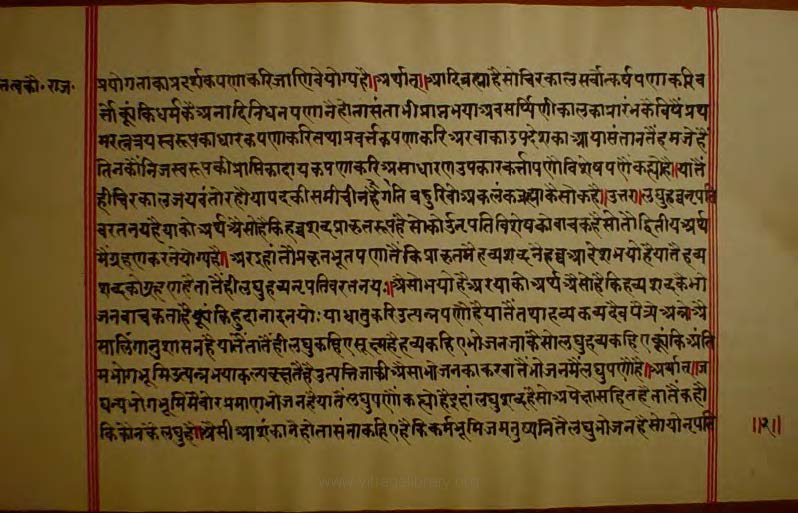 तत्वकौ. राज.
प्रयोगताका प्रदर्थकपणाकरि जाणिवे योग्य है॥ अर्थात्॥ आदि ब्रह्मा है सो चिरकाल सर्वोत्कर्षपणाकरि व
र्त्तो क्यूं कि धर्मकै अनादिनिधनपणानै होतां संता भी प्राप्त भया अवसर्प्पिणीकालका प्रारंभकै विषै प्रथ
म रत्नत्रयस्वरूपका धारकपणाकरि तथा प्रवर्त्तकपणाकरि अर वाका उपदेशका आया संतान तै हम जे हैं
तिनकौं निजस्वरूपकी प्राप्तिका दायकपणाकरि असाधारण उपकारकर्त्तापणौ विशेषपणै कह्यो है॥ यातैं
ही चिरकाल जयवंतो रहौ या पदकी समीचीन है गति बहुरि वो अकलंक ब्रह्मा कैसो क है॥ उत्तर॥ लघुहव्वनृपति
वरतनय है याको अर्थ अैसो है कि हव्वशब्द प्राकृतरूप है सो कोई नृपतिविशेषको वाचक है सो तौ द्वितीय अर्थ
मैं ग्रहण करने योग्य है॥ अर इहां तौ प्रकृतभूतपणातैं कि प्राकृतमै हव्यशब्दनै हव्व आदेश भयो है यातै हव्य
शब्दको ग्रहण है तातैं ही लघुहव्यनृपतिवरतनयः॥ अैसो भयो है अर याको अर्थ अैसो है कि हव्यशब्दकै भो
जनवाचकता है क्यूं कि हुदानादनयोः या धातुकरि उत्पन्नपणौ है यातैं तथा हव्यकव्यदैवपैत्रे अन्ने अै
सा लिंगानुशासन है यातैं तातैं ही लघु कहिए सूक्ष्म है हव्य कहिए भोजन जाकै सो लघुहव्य कहिए क्यूं कि अंति
म भोगभूमि उत्पन्न भया कल्पवृक्षतै है उत्पत्ति जाकी अैसा भोजनका करवातैं भोजनमैं लघुपणौ है॥ अर्थात्॥ ज
घन्य भोगभूमिमै वोर प्रमाण भोजन है यातैं लघुपणौ कह्यो है इहां लघुशब्द है सो अपेक्षासहित है तातै कहौ
कि कोनकै लघु है॥ अैसी आशंकानै होतां संता कहिए है कि कर्मभूमिज मनुष्यनितै लघु भोजन है सो यो नृपति
॥२॥
www.vitragelibrary.org